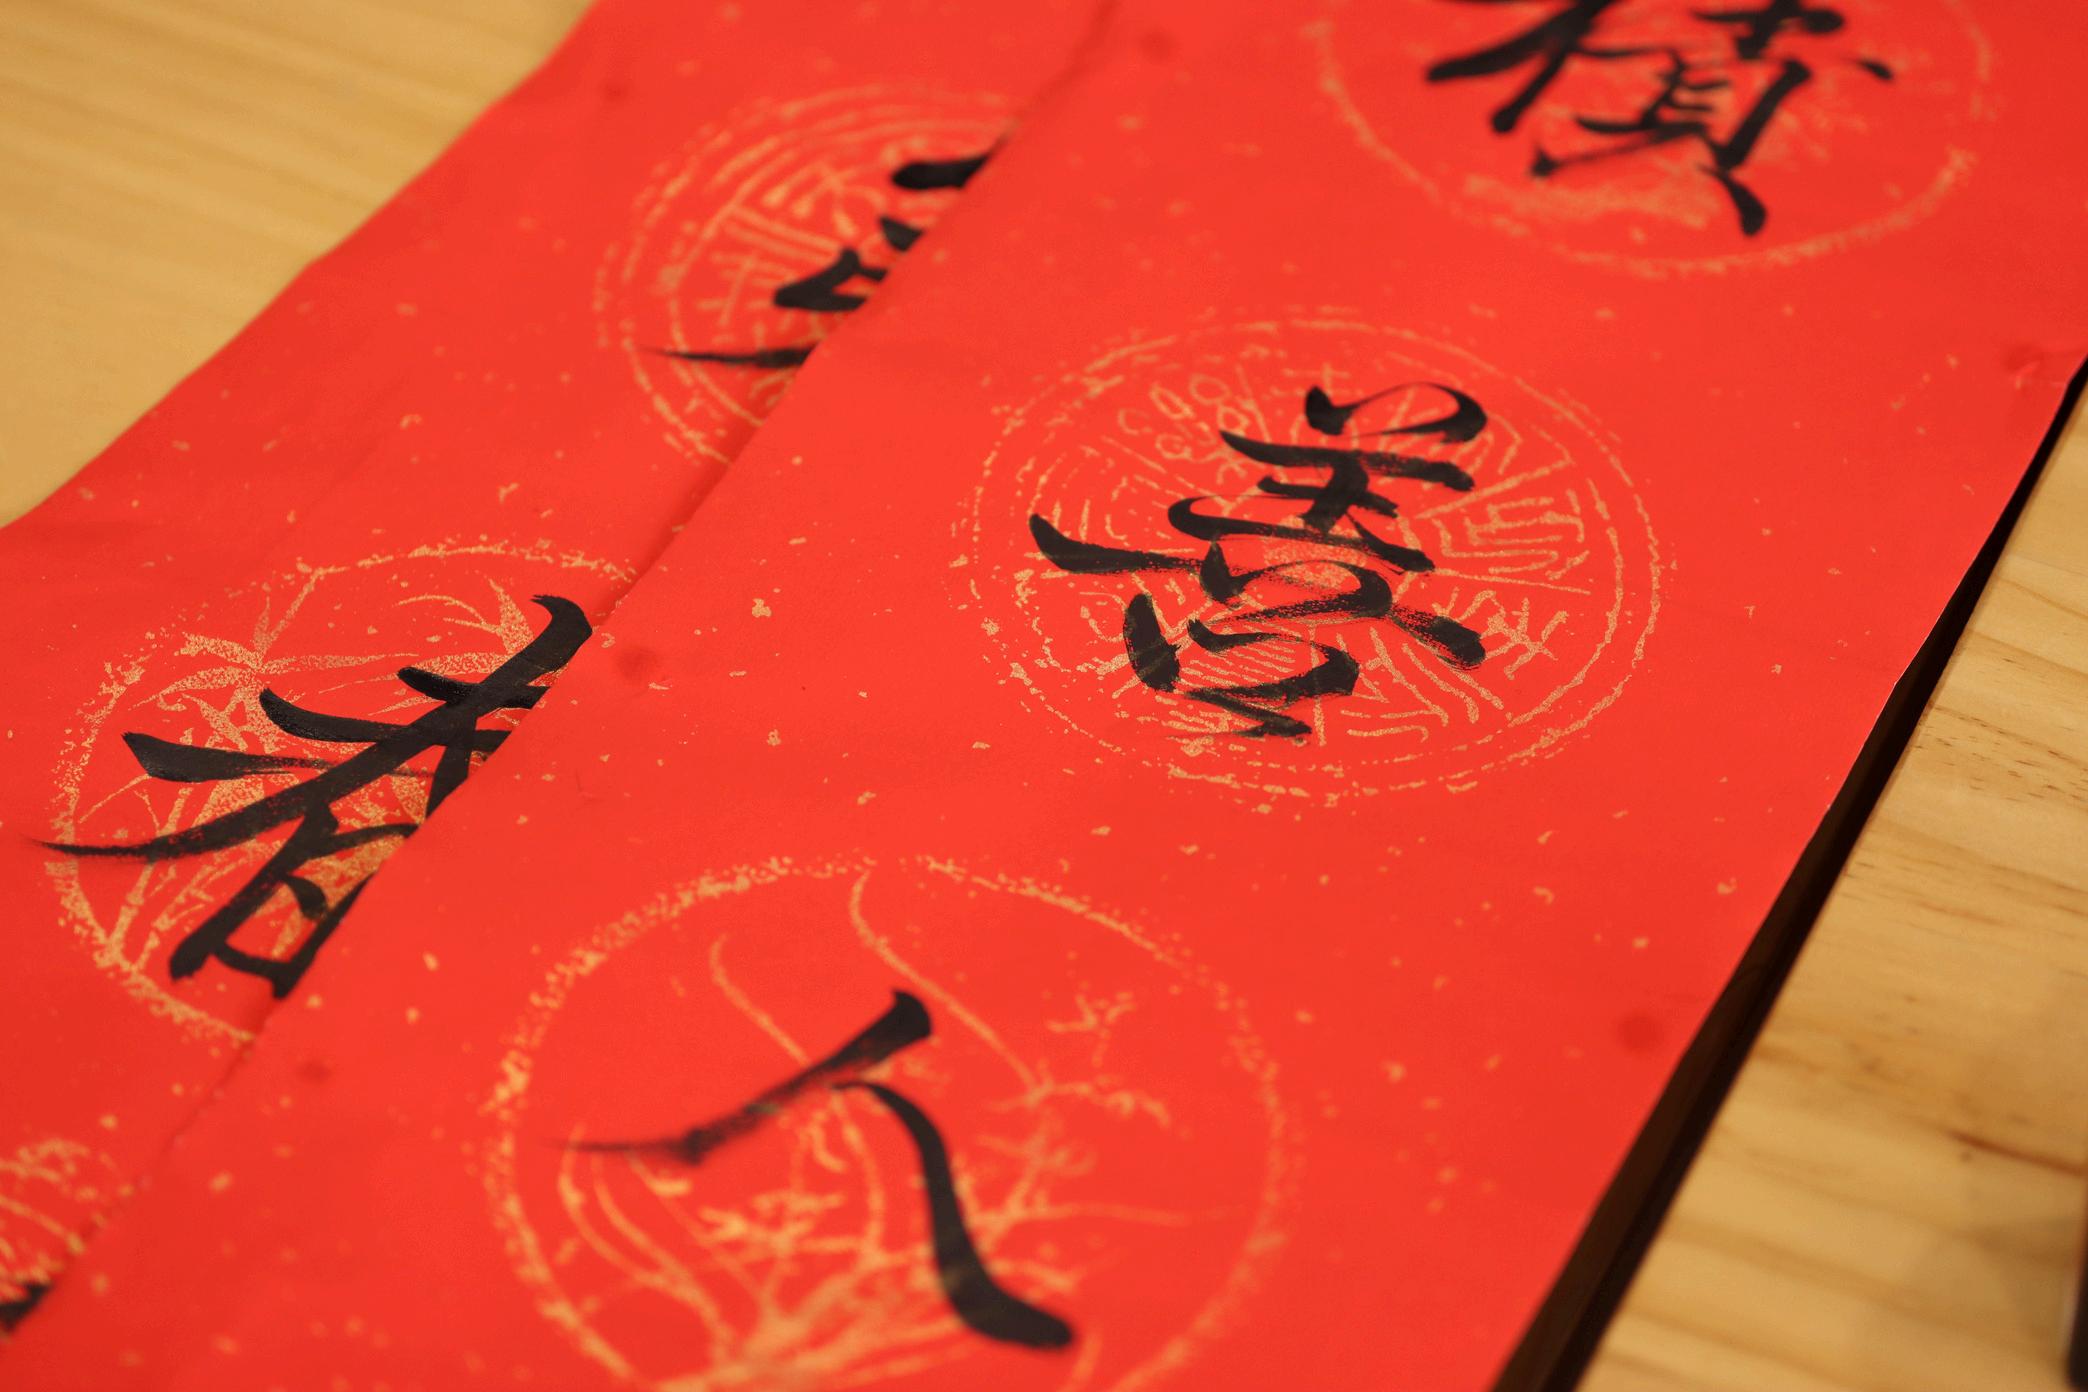 積善人
春